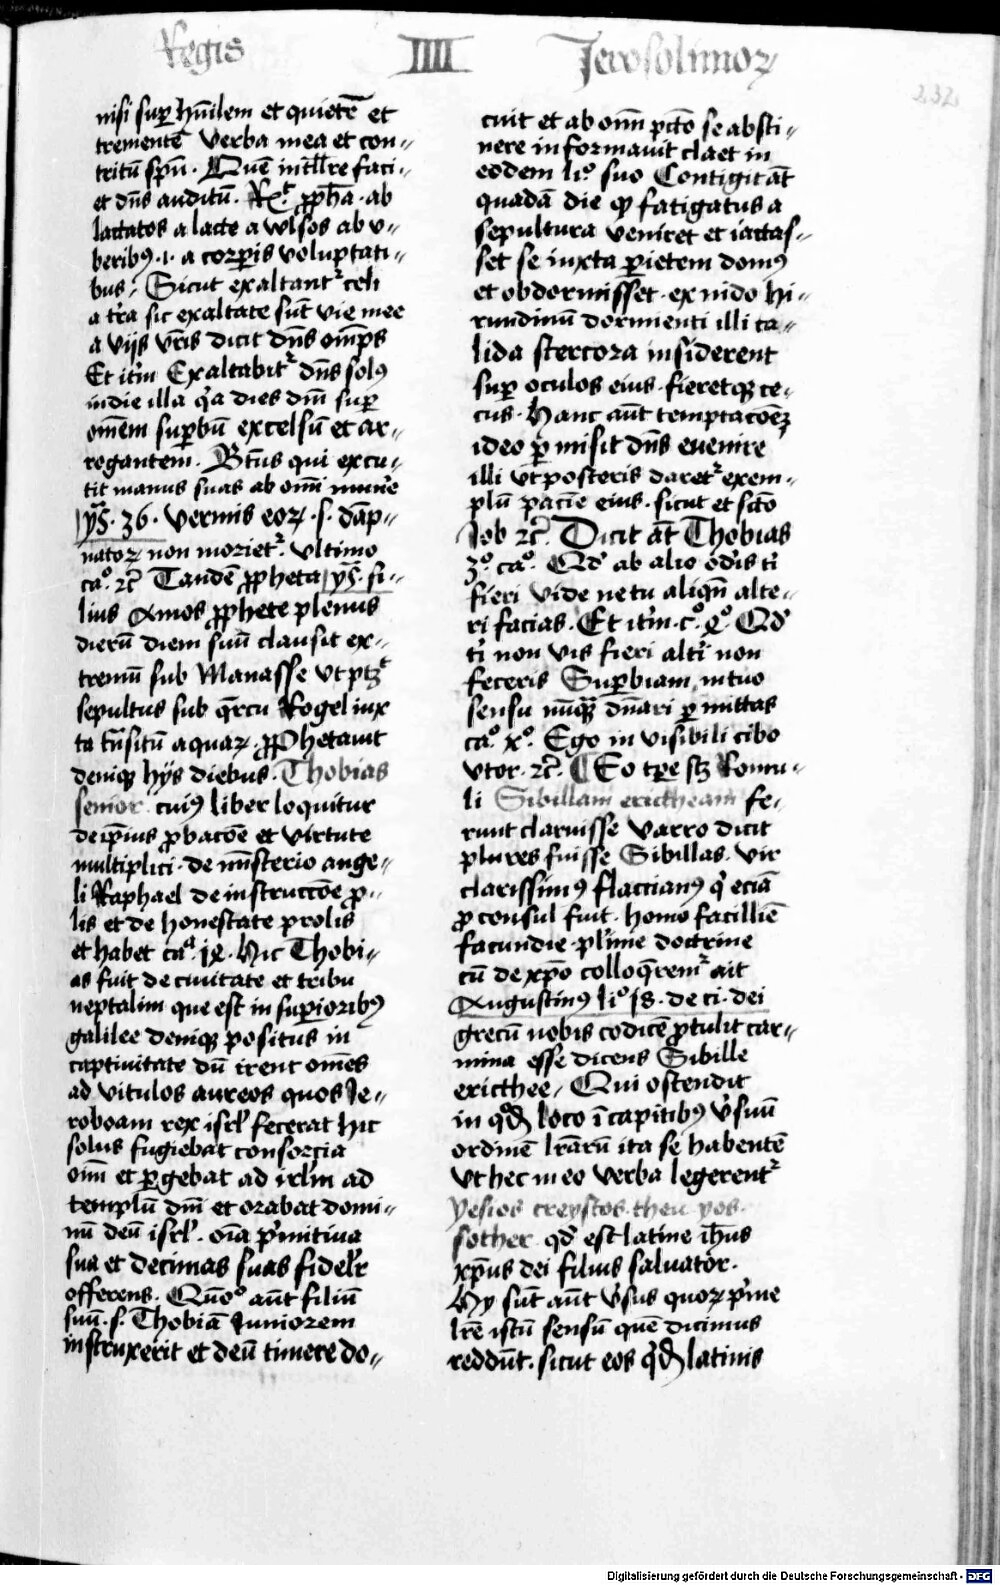 Regis IIII Jerosolimoꝝ
232
nisi suꝑ hūilem et quietē et
trementē verba mea et con-
tritū spm̄. Quē intll̄re faci-
et dn̄s auditū. Rx ꝓpha. ab
lactatos a lacte a wlsos ab v-
beribꝰ .i. a corꝑis voluptati-
bus. Sicut exaltantr celi
a tr̄a sic exaltate sūt vie mee
a vijs vr̄is dicit dn̄s om̄ps
Et itm̄ Exaltabitr dn̄s solꝰ
in die illa qͥa dies dm̄ suꝑ
om̄em suꝑbū excelsū et ar-
rogantem. Btūs qui excu-
tit manus suas ab omī mun̄e
ys. 36. Vermis eoꝝ .s. dāp-
natoꝝ non morietr. vltimo
ca°. ⁊c̄ Tandē ꝓpheta ys. fi-
lius Amos ꝓphete plenus
dierū diem suū clausit ex-
tremū sub Manasse vt ptꝫ
sepultus sub q̄rcu Rogel iux
ta trn̄sitū aquaꝝ. ꝓphetauit
deniqꝫ hijs diebus. Thobias
senior cuiꝰ liber loquitur
de ipīus ꝓbacōe et virtute
multiplici. de mīsterio ange-
li Raphael de instruccōe ꝓ-
lis et de honestate prolis
et habet ca. Hic Thobi-
as fuit de ciuitate et tribu
neptalim que est in suꝑioribꝰ
galilee deniqꝫ positus in
captiuitate dū irent om̄es
ad vitulos aureos quos Je-
roboam rex isrl̄ fecerat hic
solus fugiebat consorcia
oīm et ꝑgebat ad irlm̄ ad
templū dm̄ et orabat domi-
nū deū isrl̄. oīa pͥmitiua
sua et decimas suas fidelr̄
offerens. Qūo° aūt filiū
suū .s. Thobiā Juniorem
instruxerit et deū timere do-
cuit et ab omī pctō se absti-
nere informauit claet in
eodem li° suo Contigit āt
quadā die qꝫ fatigatus a
sepultura veniret et iactas-
set se iuxta ꝑietem domꝰ
et obdormisset. ex nido hi-
rundinū dormienti illi ca-
lida stercora insiderent
suꝑ oculos eius. fieretqꝫ ce-
cus. Hanc aūt temptacōeꝫ
ideo ꝑmisit dn̄s euenire
illi vt posteris daretr exem-
plū paciēe eius. sicut et sctō
Job ⁊c̄. Dicit āt Thobias
3°. ca°. Qd̄ ab alio od̄is ti
fieri vide ne tu aliqn̄ alte-
ri facias. Et itm̄. c°. Qd̄
ti non vis fieri altī non
feceris Suꝑbiam in tuo
sensu nūqꝫ dn̄ari ꝑmittas
ca°. x°. Ego in visibili cibo
vtor. ⁊c̄. Eo tꝑe scꝫ Romu-
li Sibillam erictheam fe-
runt claruisse varro dicit
plures fuisse Sibillas. vir
clarissimꝰ flaccianꝰ qͥ eciā
ꝓconsul fuit. homo facillīe
facundie. plīme doctrine
cū de xp̄o colloq̄remr ait
Augustinꝰ li° 18. de ci. dei
grecū nobis codicē ꝓtulit car-
mina esse dicens Sibille
ericthee. Qui ostendit
in qd̄ loco ī capitibꝰ v̄suū
ordinē lr̄arū ita se habentē
vt hec in eo verba legerentr
yesios creystos. theu yos.
sother. qd̄ est latine ih̄us
xp̄us dei filius saluator.
Hy sūt aūt v̄sus quoꝝ pͥme
lr̄e istū sensū quē dicimus
reddūt. sicut eos qd̄ latinis
Digitalisierung gefördert durch die Deutsche Forschungsgemeinschaft - DFG